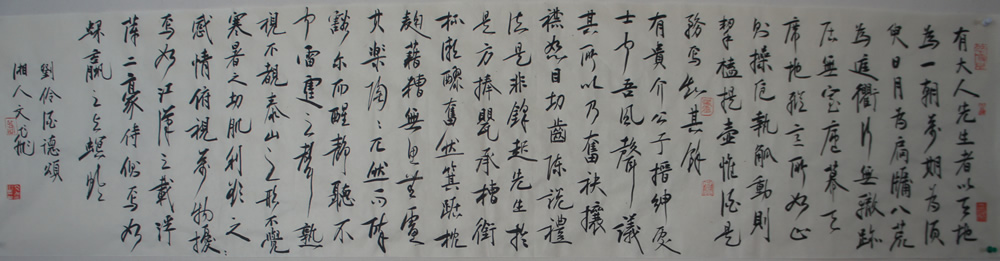 有大人先生者以天地
為一朝萬期為須
臾日月為扃牖八荒
為庭衢行無轍跡
居無室廬幕天
席地縱意所如止
則操卮執觚動則
挈榼提壺惟酒是
務焉知其餘
有貴介公子搢紳處
士聞吾風聲議
其所以乃奮袂攘
襟怒目切齒陳說禮
法是非鋒起先生於
是方捧甖承槽銜
杯漱醪奮髯箕踞枕
麴藉糟無思無慮
其樂陶々兀然而醉
豁尔而醒靜聽不
聞雷霆之聲熟
視不覩泰山之形不覺
寒暑之切肌利欲之
感情俯視萬物擾々
焉如江漢之載浮
萍二豪侍側焉如
蜾蠃之與螟蛉
劉伶酒德頌
湘人文